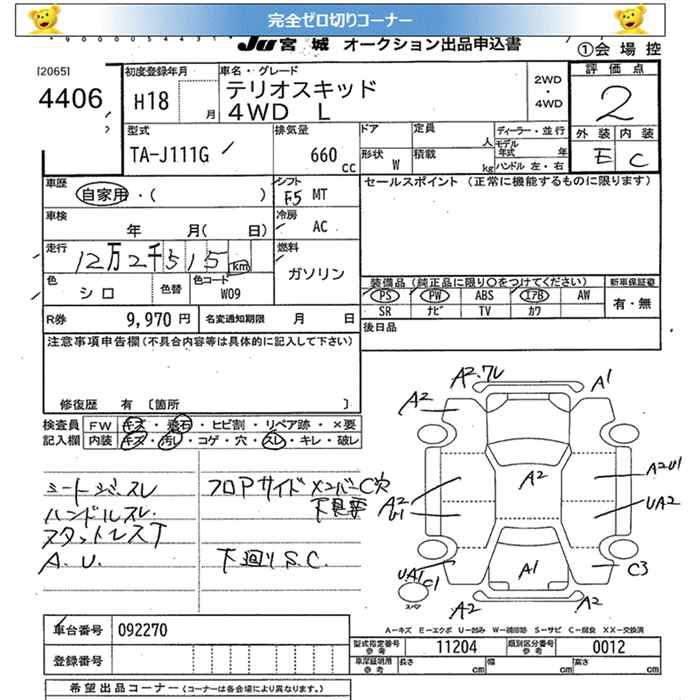 完全ゼロ切りコーナー
JU 宮城 オークション出品申込書
①会場控
[2065]
4406
初度登録年月
H18 月
車名・グレード
テリオスキッド
4WD L
2WD
・
4WD
評価点
2
外装 内装
E C
型式
TA-J111G
排気量
660 cc
ドア
定員 人
ディーラー・並行
モデル年式 年
形状 W
積載 kg
ハンドル 左・右
車歴
自家用・( )
シフト
F5 MT
セールスポイント (正常に機能するものに限ります)
車検
年 月( 日)
冷房
AC
走行
12万2千515 km
燃料
ガソリン
色
シロ
色替
色コード
W09
装備品(純正品に限り○をつけてください)
新車保証書
PS PW ABS エアB AW
有・無
SR ナビ TV カワ
R券 9,970円
名変通知期限 月 日
後日品
注意事項申告欄(不具合内容等は具体的に記入して下さい)
修復歴 有 〔箇所 〕
検査員記入欄
FW キズ・飛石・ヒビ割・リペア跡・×要
内装 キズ・汚レ・コゲ・穴・スレ・キレ・破レ
シートジミスレ
ハンドルスレ
スタットレスT
A.U.
フロアサイドメンバーC穴
下見要
下廻りS.C.
A2.ワレ
A1
A2
A2
A2U1
A2
U1
UA2
UA1
C1
A1
C3
A2
A2
スペア
A-キズ E-エクボ U-凹み W-補修跡 S-サビ C-腐食 XX-交換済
車台番号 092270
登録番号
型式指定番号 参考 11204
類別区分番号 参考 0012
車庫証明用 参考
長さ cm
幅 cm
高さ cm
希望出品コーナー (コーナーは各会場により異なります。)